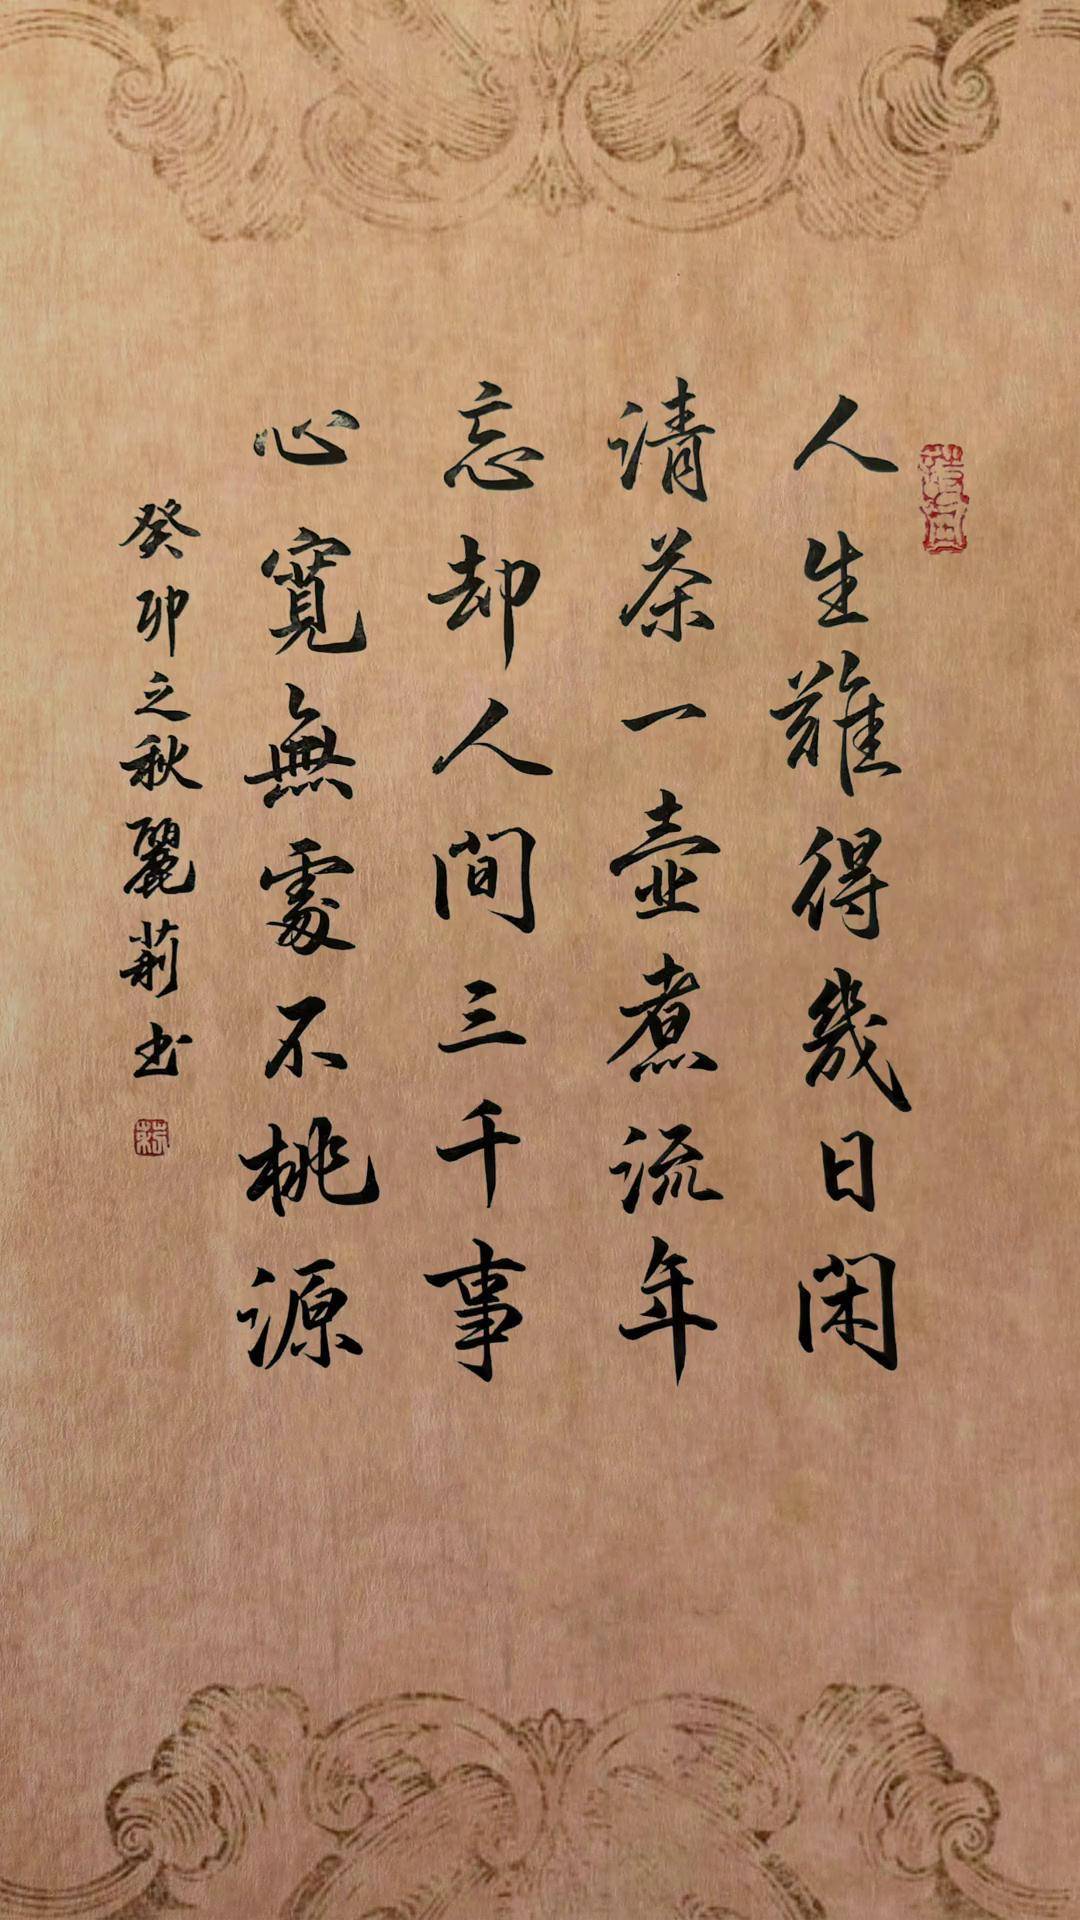 人生難得幾日閑
清茶一壺煮流年
忘却人間三千事
心寬無處不桃源
癸卯之秋麗莉书